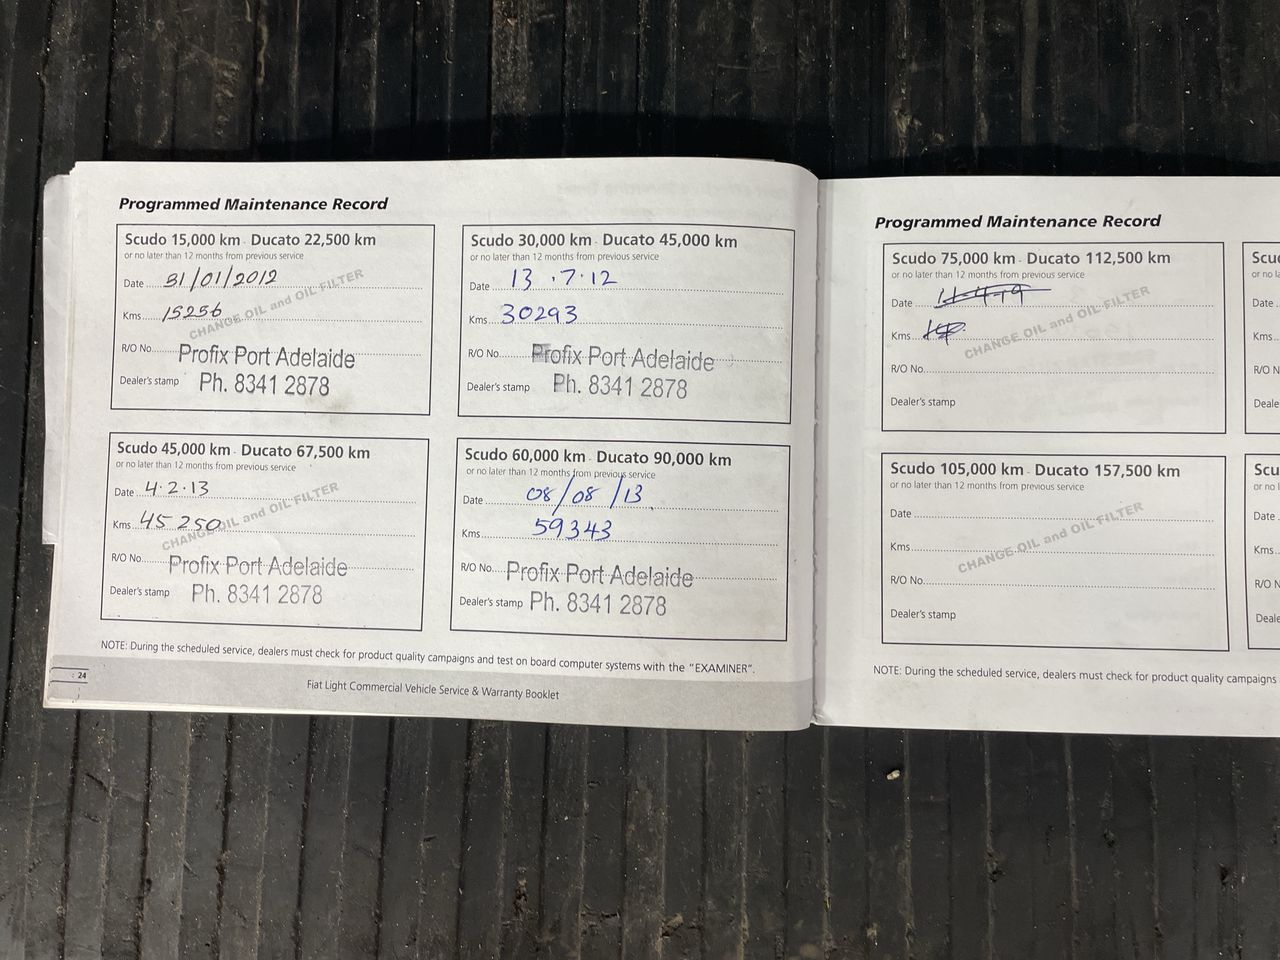 Programmed Maintenance Record
Scudo 15,000 km - Ducato 22,500 km
or no later than 12 months from previous service
Date 31/01/2012
Kms 15256
CHANGE OIL and OIL FILTER
R/O No. Profix Port Adelaide
Dealer's stamp Ph. 8341 2878
Scudo 30,000 km - Ducato 45,000 km
or no later than 12 months from previous service
Date 13.7.12
Kms 30293
R/O No. Profix Port Adelaide
Dealer's stamp Ph. 8341 2878
Scudo 45,000 km - Ducato 67,500 km
or no later than 12 months from previous service
Date 4.2.13
Kms 45250
CHANGE OIL and OIL FILTER
R/O No. Profix Port Adelaide
Dealer's stamp Ph. 8341 2878
Scudo 60,000 km - Ducato 90,000 km
or no later than 12 months from previous service
Date 08/08/13
Kms 59343
R/O No. Profix Port Adelaide
Dealer's stamp Ph. 8341 2878
NOTE: During the scheduled service, dealers must check for product quality campaigns and test on board computer systems with the "EXAMINER".
24
Fiat Light Commercial Vehicle Service & Warranty Booklet
Programmed Maintenance Record
Scudo 75,000 km - Ducato 112,500 km
or no later than 12 months from previous service
Date 11-4-19
Kms
CHANGE OIL and OIL FILTER
R/O No.
Dealer's stamp
Scudo 105,000 km - Ducato 157,500 km
or no later than 12 months from previous service
Date
Kms
CHANGE OIL and OIL FILTER
R/O No.
Dealer's stamp
Date
Kms
Date
Kms
NOTE: During the scheduled service, dealers must check for product quality campaigns